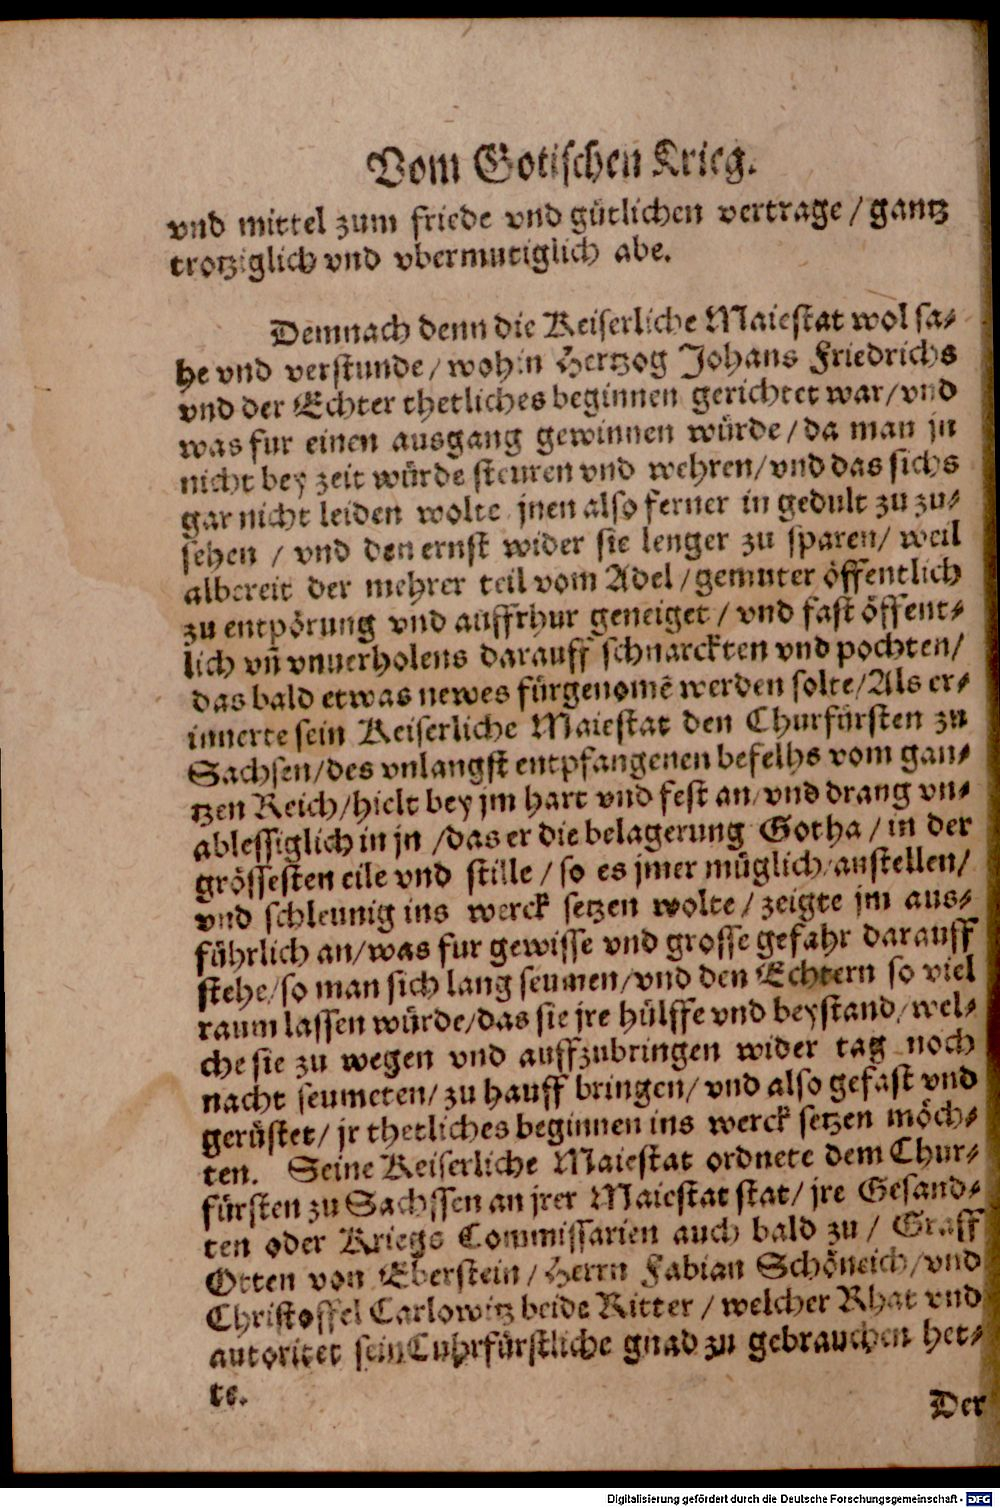 Vom Gotischen Krieg.
vnd mittel zum friede vnd gütlichen vertrage / gantz
trotziglich vnd vbermutiglich abe.
Demnach denn die Keiserliche Maiestat wol sa-
he vnd verstunde / wohin Hertzog Johans Friedrichs
vnd der Echter thetliches beginnen gerichtet war / vnd
was fur einen ausgang gewinnen würde / da man jn
nicht bey zeit würde steuren vnd wehren / vnd das sichs
gar nicht leiden wolte jnen also ferner in gedult zu zu-
sehen / vnd den ernst wider sie lenger zu sparen / weil
albereit der mehrer teil vom Adel / gemuter öffentlich
zu entpörung vnd auffrhur geneiget / vnd fast öffent-
lich vñ vnuerholens darauff schnarckten vnd pochten /
das bald etwas newes fürgenomē werden solte / Als er-
innerte sein Keiserliche Maiestat den Churfürsten zu
Sachsen / des vnlangst entpfangenen befelhs vom gan-
tzen Reich / hielt bey jm hart vnd fest an / vnd drang vn-
ablessiglich in jn / das er die belagerung Gotha / in der
grössesten eile vnd stille / so es jmer müglich / anstellen /
vnd schleunig ins werck setzen wolte / zeigte jm aus-
führlich an / was fur gewisse vnd grosse gefahr darauff
stehe / so man sich lang seumen / vnd den Echtern so viel
raum lassen würde / das sie jre hülffe vnd beystand / wel-
che sie zu wegen vnd auffzubringen wider tag noch
nacht seumeten / zu hauff bringen / vnd also gefast vnd
gerüstet / jr thetliches beginnen ins werck setzen möch-
ten. Seine Keiserliche Maiestat ordnete dem Chur-
fürsten zu Sachssen an jrer Maiestat stat / jre Gesand-
ten oder Kriegs Commissarien auch bald zu / Graff
Otten von Eberstein / Herrn Fabian Schöneich / vnd
Christoffel Carlowitz beide Ritter / welcher Rhat vnd
autoritet sein Cuhrfürstliche gnad zu gebrauchen het-
te.
Der
Digitalisierung gefördert durch die Deutsche Forschungsgemeinschaft - DFG